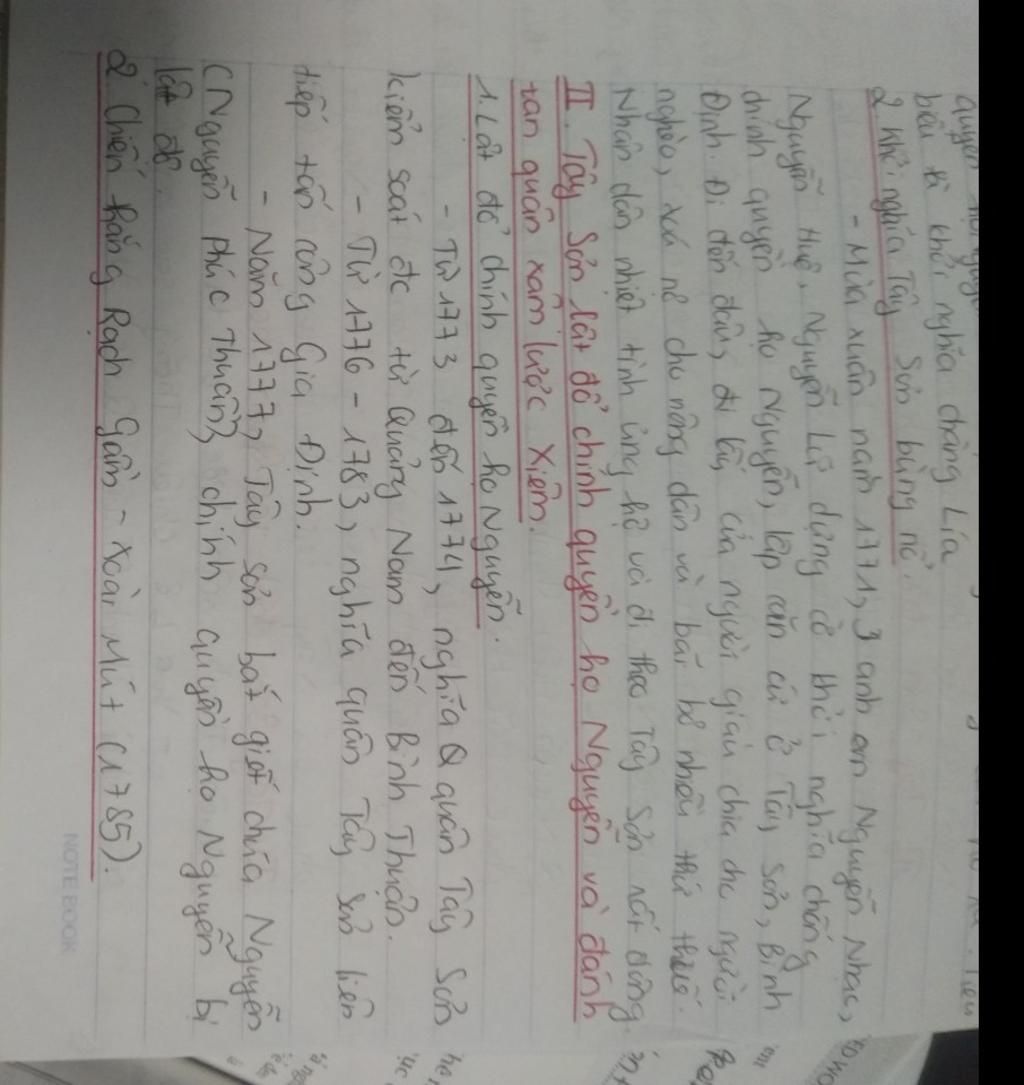 biểu là khởi nghĩa chàng Lía
2. Khởi nghĩa Tây Sơn bùng nổ.
- Mùa xuân năm 1771, 3 anh em Nguyễn Nhạc,
Nguyễn Huệ, Nguyễn Lữ dựng cờ khởi nghĩa chống
chính quyền họ Nguyễn, lập căn cứ ở Tây Sơn, Bình
Định. Đi đến đâu, đi lấy của người giàu chia cho người
nghèo, xoá nợ cho nông dân và bãi bỏ nhiều thứ thuế.
Nhân dân nhiệt tình ủng hộ và đi theo Tây Sơn rất đông.
II. Tây Sơn lật đổ chính quyền họ Nguyễn và đánh
tan quân xâm lược Xiêm.
1. Lật đổ chính quyền họ Nguyễn.
- Từ 1773 đến 1774, nghĩa Q quân Tây Sơn
kiểm soát đc từ Quảng Nam đến Bình Thuận.
- Từ 1776 - 1783, nghĩa quân Tây Sơn liên
tiếp tấn công Gia Định.
- Năm 1777, Tây Sơn bắt giết chúa Nguyễn
(Nguyễn Phúc Thuần), chính quyền họ Nguyễn bị
lật đổ.
2. Chiến thắng Rạch Gầm - Xoài Mút (1785).
NOTE BOOK